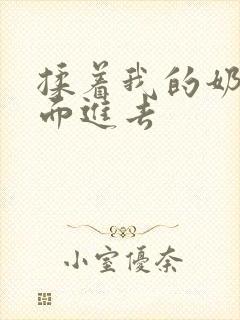 揉着我的奶
而进去
小室優奈